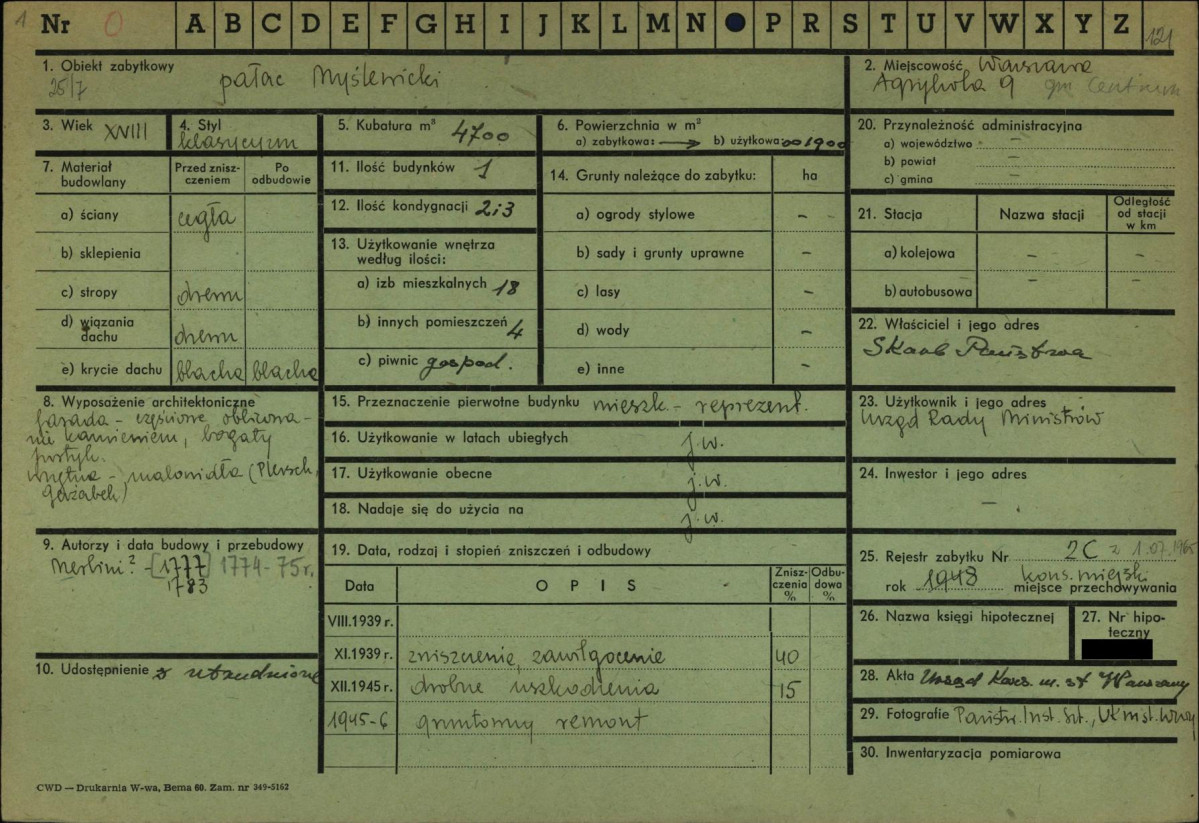 1
Nr 0 A B C D E F G H I J K L M N P R S T U V W X Y Z 121
1. Obiekt zabytkowy
25/7 pałac Myślewicki
2. Miejscowość Warszawa
Agrykola 9 gm Centrum
3. Wiek XVIII
4. Styl
klasycyzm
5. Kubatura m³ 4700
6. Powierzchnia w m²
a) zabytkowa: b) użytkowa: 1900
7. Materiał budowlany
Przed zniszczeniem
Po odbudowie
a) ściany cegła
b) sklepienia
c) stropy drewn
d) wiązania dachu drewn
e) krycie dachu blacha blacha
8. Wyposażenie architektoniczne
fasada - częściowe oblicowa-
nie kamieniem, bogaty
portyk.
wnętrza - malowidła (Plersch,
9. Autorzy i data budowy i przebudowy
Merlini? - [1777] 1774-75 r.
1783
10. Udostępnienie utrudnione
11. Ilość budynków 1
12. Ilość kondygnacji 2 i 3
13. Użytkowanie wnętrza
według ilości:
a) izb mieszkalnych 18
b) innych pomieszczeń 4
c) piwnic gospod.
14. Grunty należące do zabytku: ha
a) ogrody stylowe -
b) sady i grunty uprawne -
c) lasy -
d) wody -
e) inne -
15. Przeznaczenie pierwotne budynku mieszk - reprezent.
16. Użytkowanie w latach ubiegłych j.w.
17. Użytkowanie obecne j.w.
18. Nadaje się do użycia na j.w.
19. Data, rodzaj i stopień zniszczeń i odbudowy
Data OPIS Zniszczenia % Odbudowa %
VIII.1939 r.
XI.1939 r. zniszczenie, zawilgocenie 40
XII.1945 r. drobne uszkodzenia 15
1945-6 gruntowny remont
20. Przynależność administracyjna
a) województwo -
b) powiat -
c) gmina -
21. Stacja Nazwa stacji Odległość od stacji w km
a) kolejowa - -
b) autobusowa - -
22. Właściciel i jego adres
Skarb Państwa
23. Użytkownik i jego adres
Urząd Rady Ministrów
24. Inwestor i jego adres
-
25. Rejestr zabytku Nr 2C z 1.07.1965
rok 1948 kons. miejsk.
miejsce przechowywania
26. Nazwa księgi hipotecznej
27. Nr hipoteczny
28. Akta Urząd Kons. m. st Warszawy
29. Fotografie Państw. Inst. Szt.,
30. Inwentaryzacja pomiarowa
CWD — Drukarnia W-wa, Bema 60. Zam. nr 349-5162